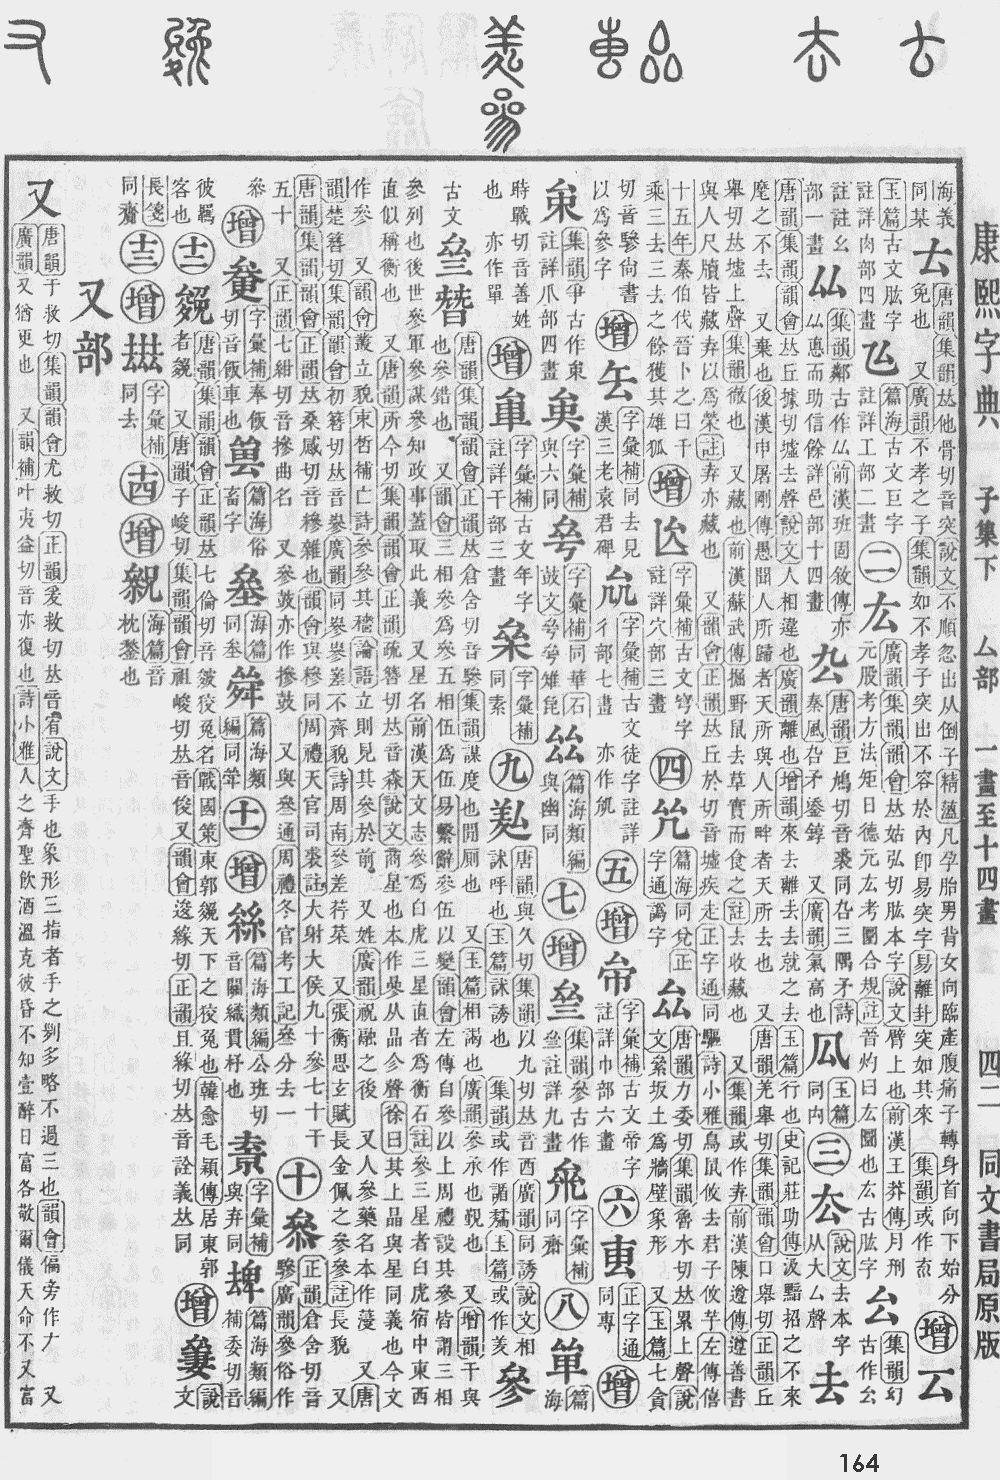 康熙字典 子集下 厶部 一畫至十四畫 四二 同文書局原版
海義同某
𠫓 唐韻集韻𠀤他骨切音突說文不順忽出从倒子精薀凡孕胎男背女向臨產腹痛子轉身首向下始分免也 又廣韻不孝之子集韻如不孝子突出不容於內卽易突字易離卦突如其來 集韻或作
增 云
玉篇古文肱字註詳肉部四畫
篇海古文巨字註詳工部二畫
二 厷 廣韻集韻韻會𠀤姑弘切肱本字說文臂上也前漢王莽傳月刑元股考方法矩日德元厷考圜合規註晉灼曰厷圜也厷古肱字
集韻幻古作
註註幺部一畫
厸 集韻鄰古作厸前漢班固敘傳亦厸惪而助信餘詳邑部十四畫
厹 唐韻巨鳩切音裘同叴三隅矛詩秦風厹矛鋈錞 又廣韻氣高也
玉篇同禸
三 厺 說文去本字从大厶聲
去
唐韻集韻韻會𠀤丘據切墟去聲說文人相違也廣韻離也增韻來去離去去就之去玉篇行也史記莊助傳汲黯招之不來麾之不去 又棄也後漢申屠剛傳愚聞人所歸者天所與人所畔者天所去也 又唐韻羌舉切集韻韻會口舉切正韻丘
舉切𠀤墟上聲集韻徹也 又藏也前漢蘇武傳掘野鼠去草實而食之註去收藏也 又集韻或作弆前漢陳遵傳遵善書與人尺牘皆藏弆以為榮註弆亦藏也 又韻會正韻𠀤丘於切音墟疾走正字通同驅詩小雅鳥鼠攸去君子攸芋左傳僖
十五年秦伯伐晉卜之曰千乘三去三去之餘獲其雄狐
增 字彙補古文穹字註詳穴部三畫
四 篇海同兌正字通譌字
厽 唐韻力委切集韻魯水切𠀤累上聲說文絫坺土為牆壁象形 又玉篇七貪
切音驂尙書以為參字
增 字彙補同去見漢三老袁君碑
字彙補古文徒字註詳彳部七畫
五 增 字彙補古文帝字註詳巾部六畫
六 叀 正字通同專
增
集韻爭古作 註詳爪部四畫
字彙補與六同
字彙補同華石鼓文
篇海類編與幽同
七 增 集韻參古作 註詳九畫
字彙補同齋
八 篇海
時戰切音善姓也 亦作單
增 字彙補古文年字註詳干部三畫
字彙補同索
九 羑 唐韻與久切集韻以九切𠀤音酉廣韻同誘說文相訹呼也玉篇訹誘也 集韻或作誘 玉篇或作羑
參
古文
唐韻集韻韻會正韻𠀤倉含切音驂集韻謀度也閒厠也 又玉篇相謁也廣韻參承也覲也 又增韻干與也參錯也 又韻會三相參為參五相伍為伍易繫辭參伍以變韻會左傳自參以上周禮設其參皆謂三相
參列也後世參軍參謀參知政事蓋取此義 又星名前漢天文志參為白虎三星直者為衡石註參三星者白虎宿中東西直似稱衡也 又唐韻所今切集韻韻會正韻疏簪切𠀤音森說文商星也本作曑从品㐱聲徐曰其上品與星同義也今文
作參 又韻會叢立貌束晳補亡詩參參其穡論語立則見其參於前 又姓廣韻祝融之後 又人參藥名本作蓡 又唐韻楚簪切集韻韻會初簪切𠀤音嵾廣韻同嵾嵾嵳不齊貌詩周南參差荇菜 又張衡思玄賦長余佩之參參註長貌 又
唐韻集韻韻會正韻𠀤桑感切音糝雜也韻會與糝同周禮天官司裘註大射大侯九十參七十干五十 又正韻七紺切音摻曲名 又參鼓亦作摻鼓 又與叄通周禮冬官考工記叄分去一
十 叅 正韻倉含切音驂廣韻參俗作參
增 字彙補奉飯切音飯車也
篇海俗畜字
海篇同叅
篇海類編同犖
十一 增 篇海類編公班切音關織貫杼也
字彙補與弃同
篇海類編補委切音彼羈客也
十二 㕙 唐韻集韻韻會正韻𠀤七倫切音皴狡兔名戰國策東郭㕙天下之狡兔也韓愈毛穎傳居東郭者㕙 又唐韻子峻切集韻韻會祖峻切𠀤音俊又韻會逡緣切正韻且緣切𠀤音詮義𠀤同
增 說文
長箋同齋
十三 增 字彙補同去
十四 增 海篇音枕鏊也
又部
又 唐韻于救切集韻韻會尤救切正韻爰救切𠀤音宥說文手也象形三指者手之𠛱多略不過三也韻會偏旁作 又廣韻又猶更也 又韻補叶夷益切音亦復也詩小雅人之齊聖飮酒溫克彼昏不知壹醉日富各敬爾儀天命不又富
164